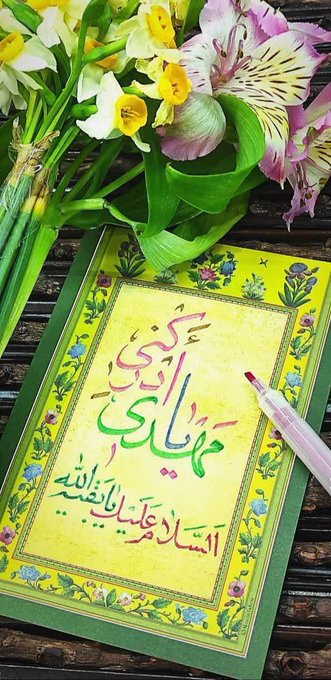 یا مهدی
ادرکنی
السلام علیک یا بقیه الله